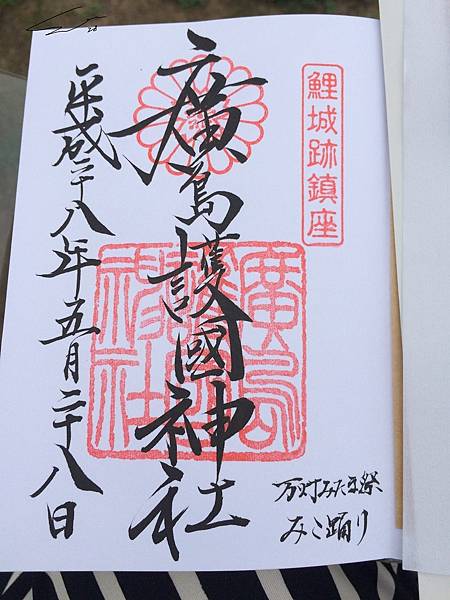 鯉城跡鎮座
廣島護國神社
廣島
護國
神社
万灯みたま祭
みこ踊り
平成二十八年五月二十八日